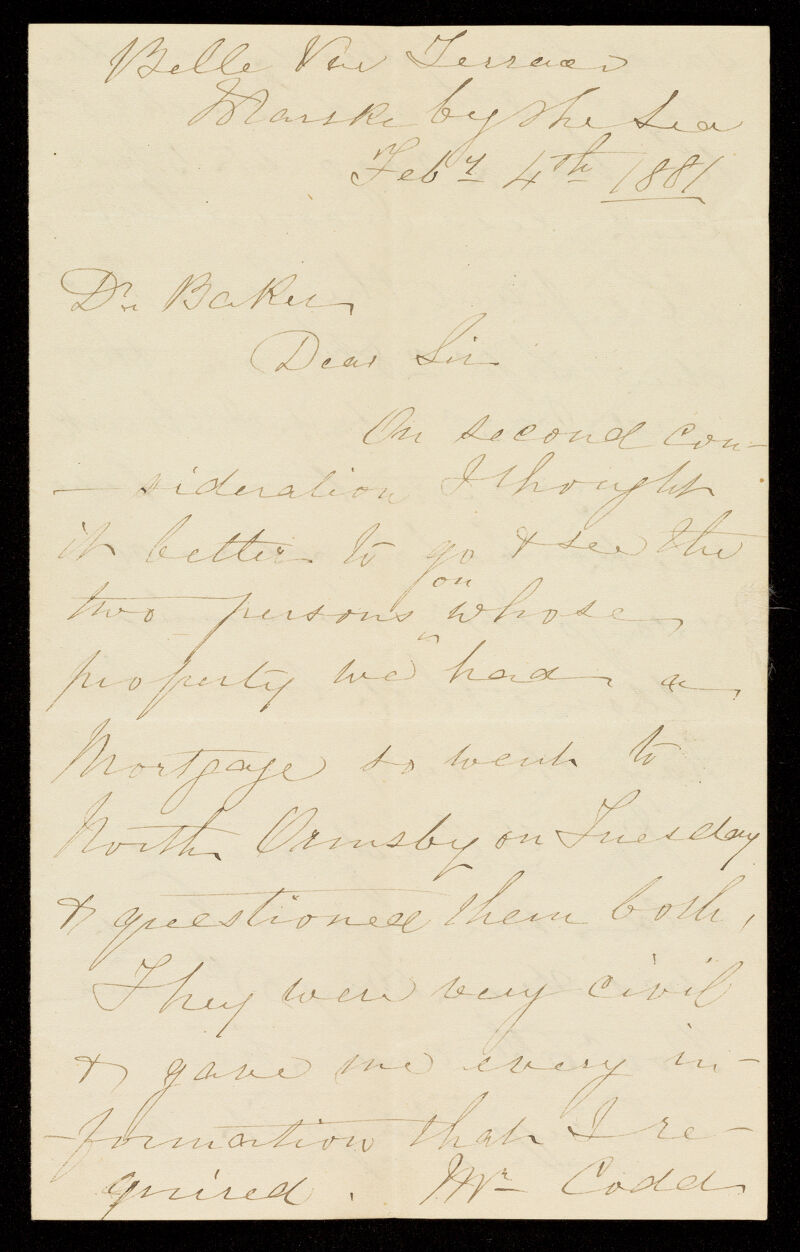 Belle Vue Terrace
Marske by the Sea
Feby 4th 1881
Dr Baker
Dear Sir
On second con-
- sideration I thought
it better to go & see the
two persons on whose
property we had a
Mortgage so went to
North Ormsby on Tuesday
& questioned them both,
They were very civil
& gave me every in-
-formation that I re-
quired. Mr Codd